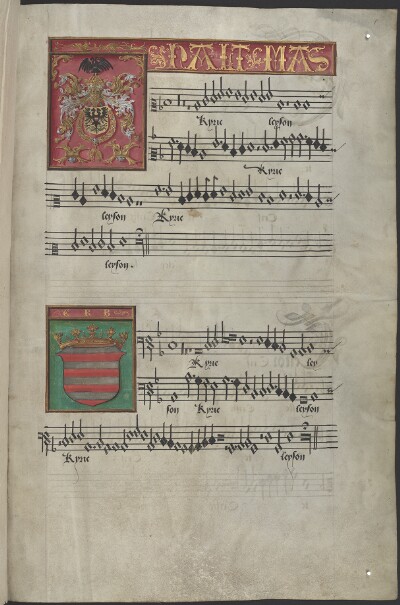 Kyrie leyson
Kyrie
leyson Kyrie
leyson.
Kyrie ley
son Kyrie leyson
Kyrie leyson